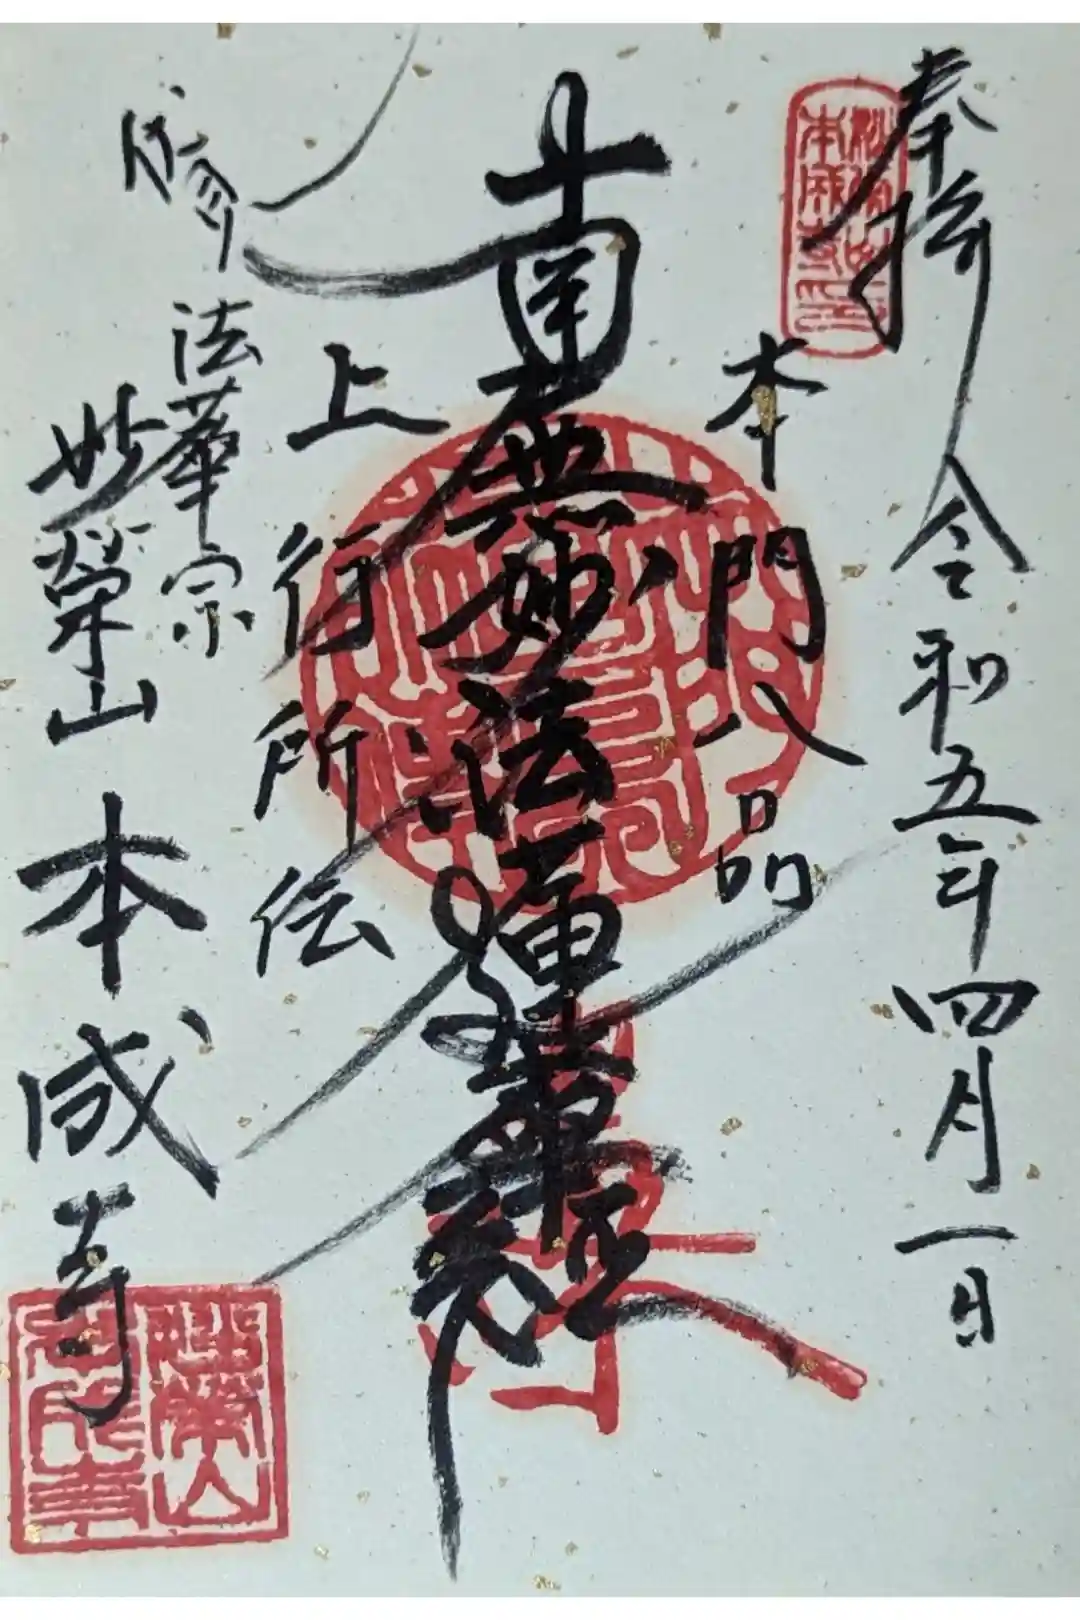 奉拝 令和五年四月一日
本門八品
南無妙法蓮華経
上行所伝
法華宗
妙榮山 本成寺
妙榮山
本成寺